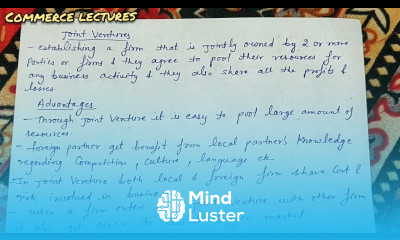 COMMERCE LECTURES
Joint Ventures
- establishing a firm that is jointly owned by 2 or more
Parties or firms & they agree to pool their resources for
any business activity & they also share all the profits &
losses.
Advantages
- Through Joint Venture it is easy to pool large amount of
resources.
- foreign partner get benefit from local partner's Knowledge
regarding Competition, Culture, language etc
- In Joint Venture both local & foreign firm share Cost &
risk involved in busine
- when a firm enters venture with other firm
it also get access to market
Mind
Luster